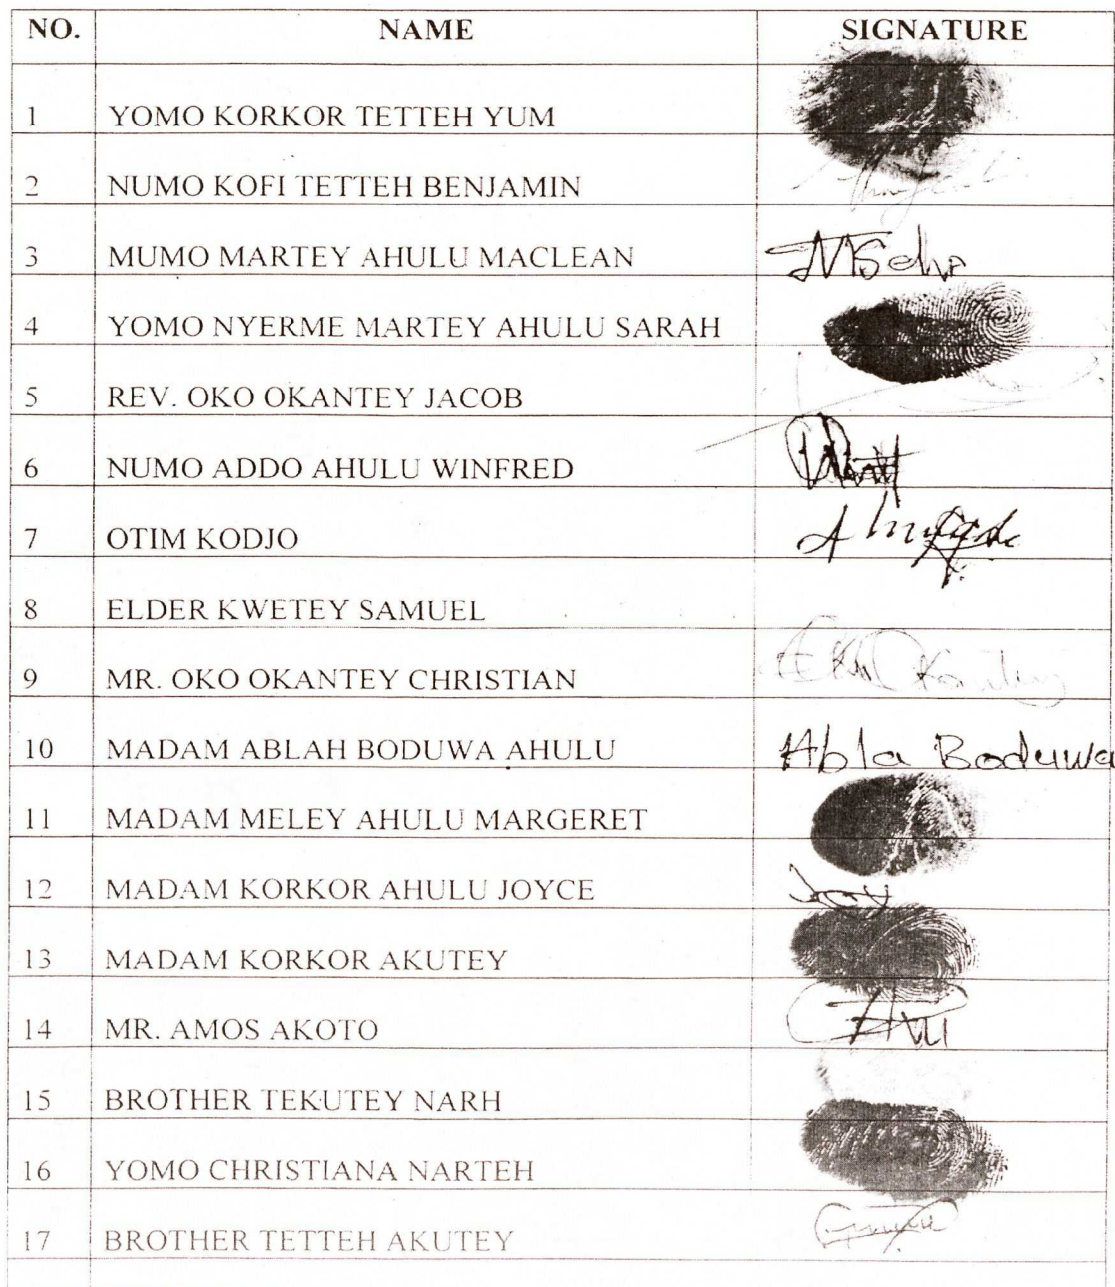 NO. NAME SIGNATURE
1 YOMO KORKOR TETTEH YUM
2 NUMO KOFI TETTEH BENJAMIN
3 MUMO MARTEY AHULU MACLEAN
4 YOMO NYERME MARTEY AHULU SARAH
5 REV. OKO OKANTEY JACOB
6 NUMO ADDO AHULU WINFRED
7 OTIM KODJO
8 ELDER KWETEY SAMUEL
9 MR. OKO OKANTEY CHRISTIAN
10 MADAM ABLAH BODUWA AHULU Abla Boduwa
11 MADAM MELEY AHULU MARGERET
12 MADAM KORKOR AHULU JOYCE
13 MADAM KORKOR AKUTEY
14 MR. AMOS AKOTO
15 BROTHER TEKUTEY NARH
16 YOMO CHRISTIANA NARTEH
17 BROTHER TETTEH AKUTEY